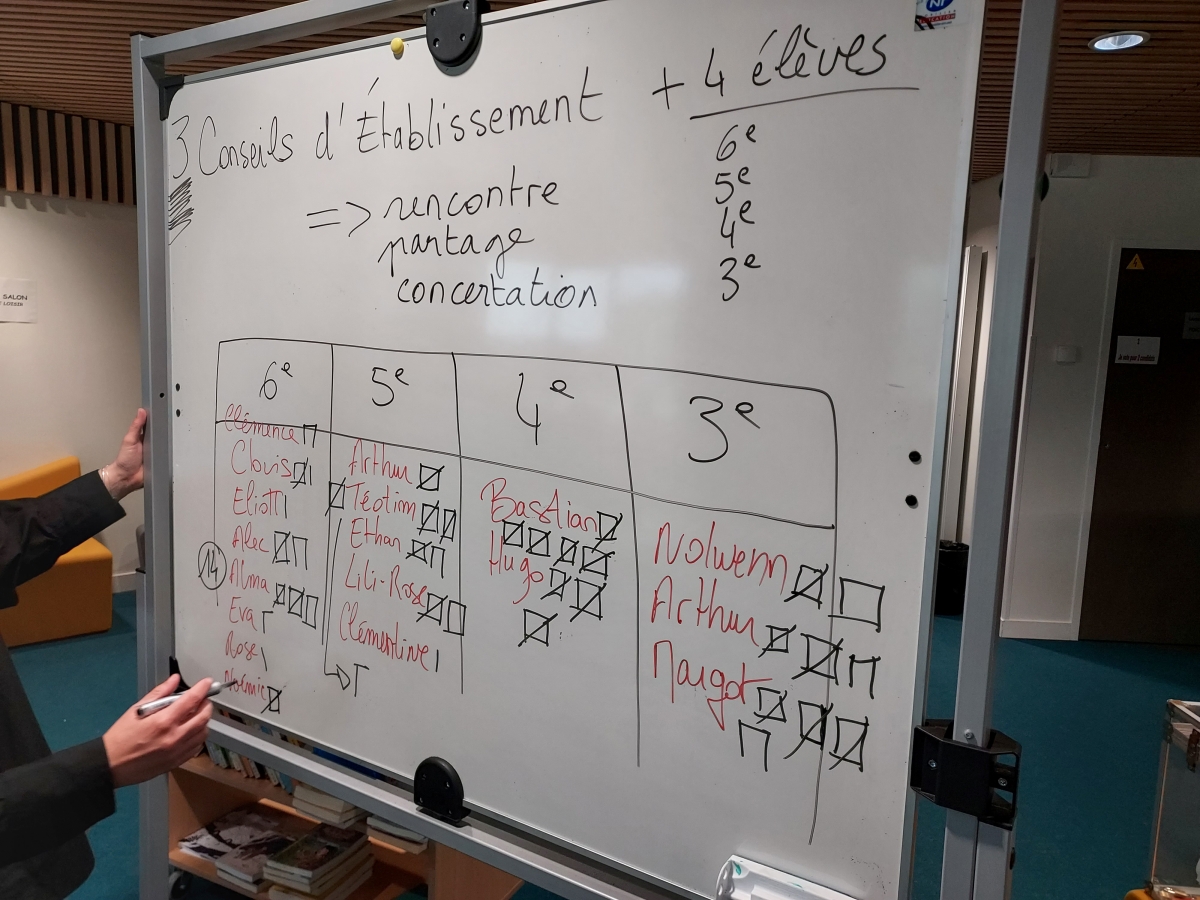 3 Conseils d'Établissement + 4 élèves
6e
5e
4e
3e
=> rencontre
partage
concertation
6e 5e 4e 3e
Clémence
Clovis
Eliott
Alec
14
Alma
Eva
Rose
Noémie
Arthur
Téotim
Ethan
Lili-Rose
Clémentine
Bastian
Hugo
Nolwenn
Arthur
Margot
SALON